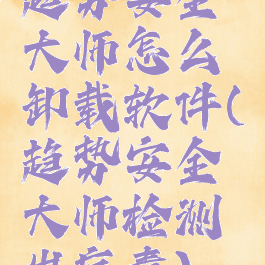 趋势安全
大师怎么
卸载软件(
趋势安全
大师检测
出病毒)